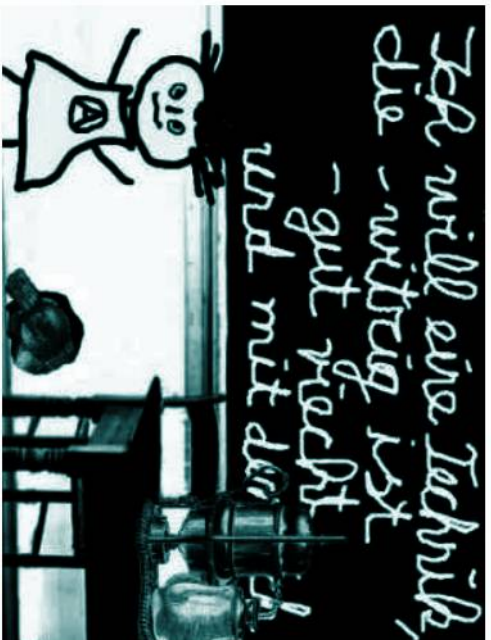 Ich will eine Technik,
die - witzig ist
- gut riecht
und mit
A